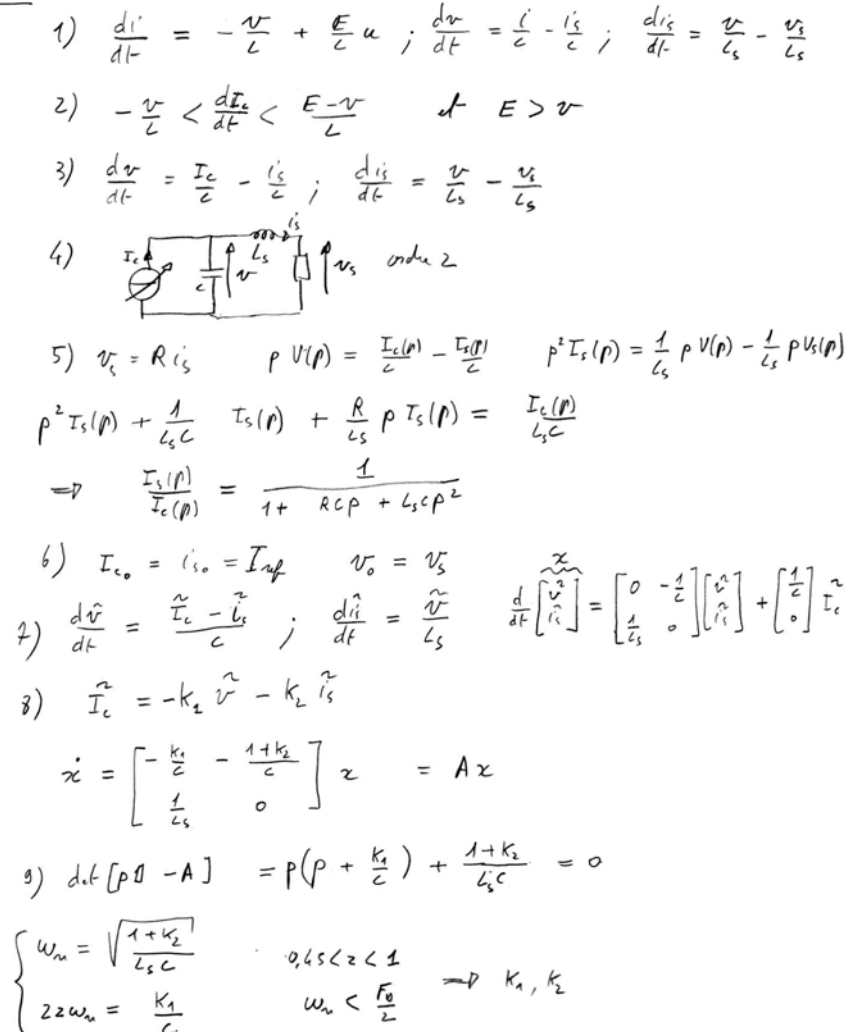 1) di/dt = - v/L + E/L u ; dv/dt = i/c - is/c ; dis/dt = v/Ls - vs/Ls
2) - v/L < dIc/dt < E-v/L et E > v
3) dv/dt = Ic/c - is/c ; dis/dt = v/Ls - vs/Ls
4) Ic c v Ls is vs ordre 2
5) vs = R is p V(p) = Ic(p)/c - Is(p)/c p² Is(p) = 1/Ls p V(p) - 1/Ls p Vs(p)
p² Is(p) + 1/LsC Is(p) + R/Ls p Is(p) = Ic(p)/LsC
⇒ Is(p)/Ic(p) = 1/1 + RCp + LsCp²
6) Ico = iso = Iref vo = vs
7) dṽ/dt = Ĩc - ĩs/c ; dĩs/dt = ṽ/Ls d/dt [ṽ ĩs] = [0 -1/c ; 1/Ls 0] [ṽ ĩs] + [1/c ; 0] Ĩc x
8) Ĩc = -k1 ṽ - k2 ĩs
ẋ = [- k1/c - 1+k2/c ; 1/Ls 0] x = Ax
9) det [p1 - A] = p(p + k1/c) + 1+k2/LsC = 0
{ ωn = √(1+k2/LsC) 0,45 < z < 1
2zωn = K1/C ωn < /2 ⇒ K1, K2